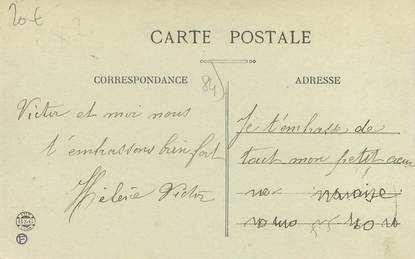 20€
CARTE POSTALE
CORRESPONDANCE
84
ADRESSE
Victor et moi nous
t'embrassons bien fort
Hélène Victor
Je t'embrasse de
tout mon petit cœur